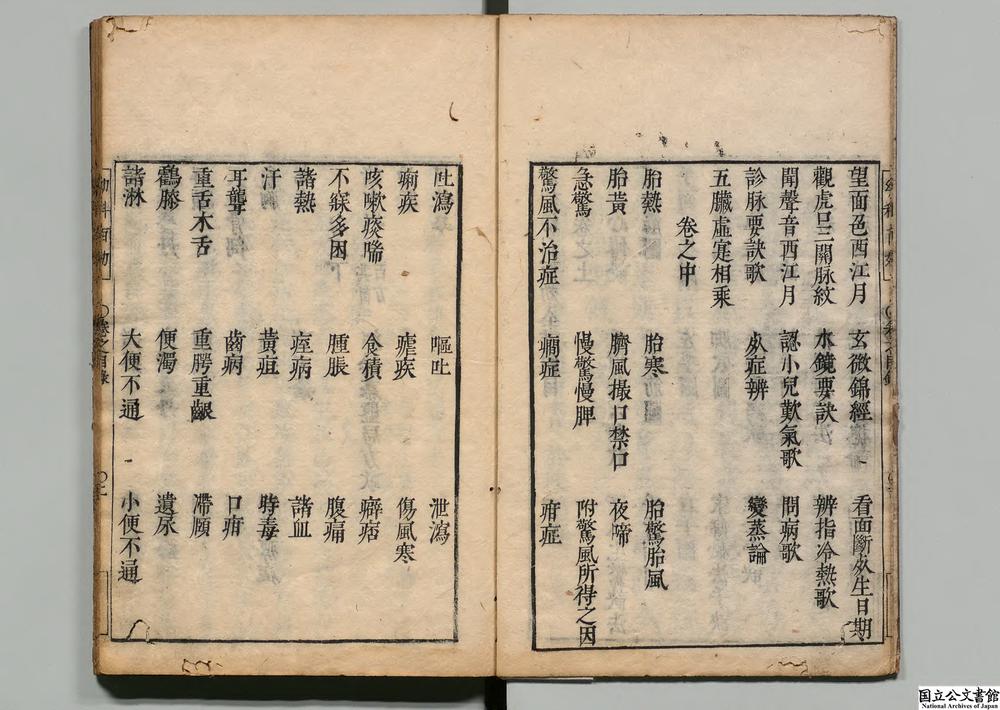 望面色西江月　玄微錦經　看面斷死生日期
觀虎口三關脉紋　水鏡要訣　辨指冷熱歌
聞聲音西江月　認小兒歎氣歌　問病歌
診脉要訣歌　死症辨　變蒸論
五臟虛寔相乘
卷之中
胎熱　胎寒　胎驚胎風
胎黃　臍風撮口禁口　夜啼
急驚　慢驚慢脾　附驚風所得之因
驚風不治症　癇症　疳症
吐瀉　嘔吐　泄瀉
痢疾　瘧疾　傷風寒
咳嗽痰喘　食積　癖痞
不寐多困　腫脹　腹痛
諸熱　痓病　諸血
汗　黃疸　時毒
耳聾　齒病　口疳
重舌木舌　重腭重齦　滯頤
鶴膝　便濁　遺尿
諸淋　大便不通　小便不通
幼科百効　卷之目錄
国立公文書館
National Archives of Japan